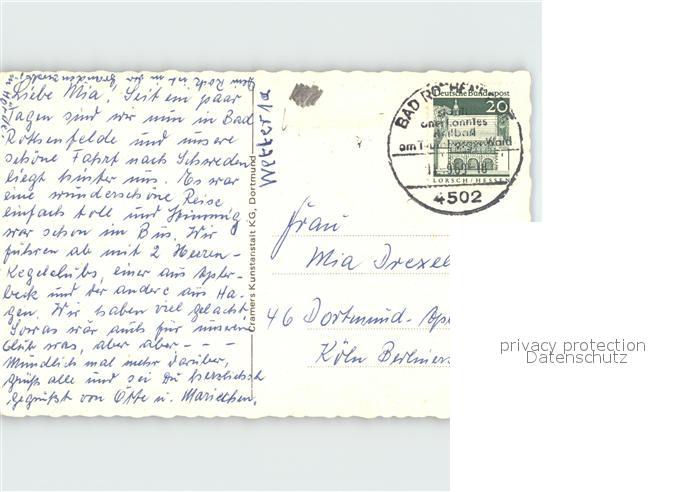 Liebe Mia! Seit ein paar
Tagen sind wir nun in Bad
Rothenfelde und unsere
schöne Fahrt nach Schweden
liegt hinter uns. Es war
eine wunderschöne Reise
einfach toll und Stimmung
war schon im Bus. Wir
fuhren ab mit 2 Herren-
Kegelclubs, einer aus Apler-
beck und der andere aus Ha-
gen. Wir haben viel gelacht.
Sowas wär auch für unseren
Club was, aber aber - - -
Mündlich mal mehr darüber,
grüß alle und sei Du herzlichst
gegrüßt von Otto u. Mariechen.
Wetter 1a
Cramers Kunstanstalt KG, Dortmund
BAD ROTHENFELDE
staatl.
anerkanntes
Heilbad
am Teutoburger Wald
69-18
4502
Deutsche Bundespost
20
LORSCH/HESSEN
Frau
Mia Drexel
46 Dortmund-Apl
Köln Berliners
privacy protection
Datenschutz